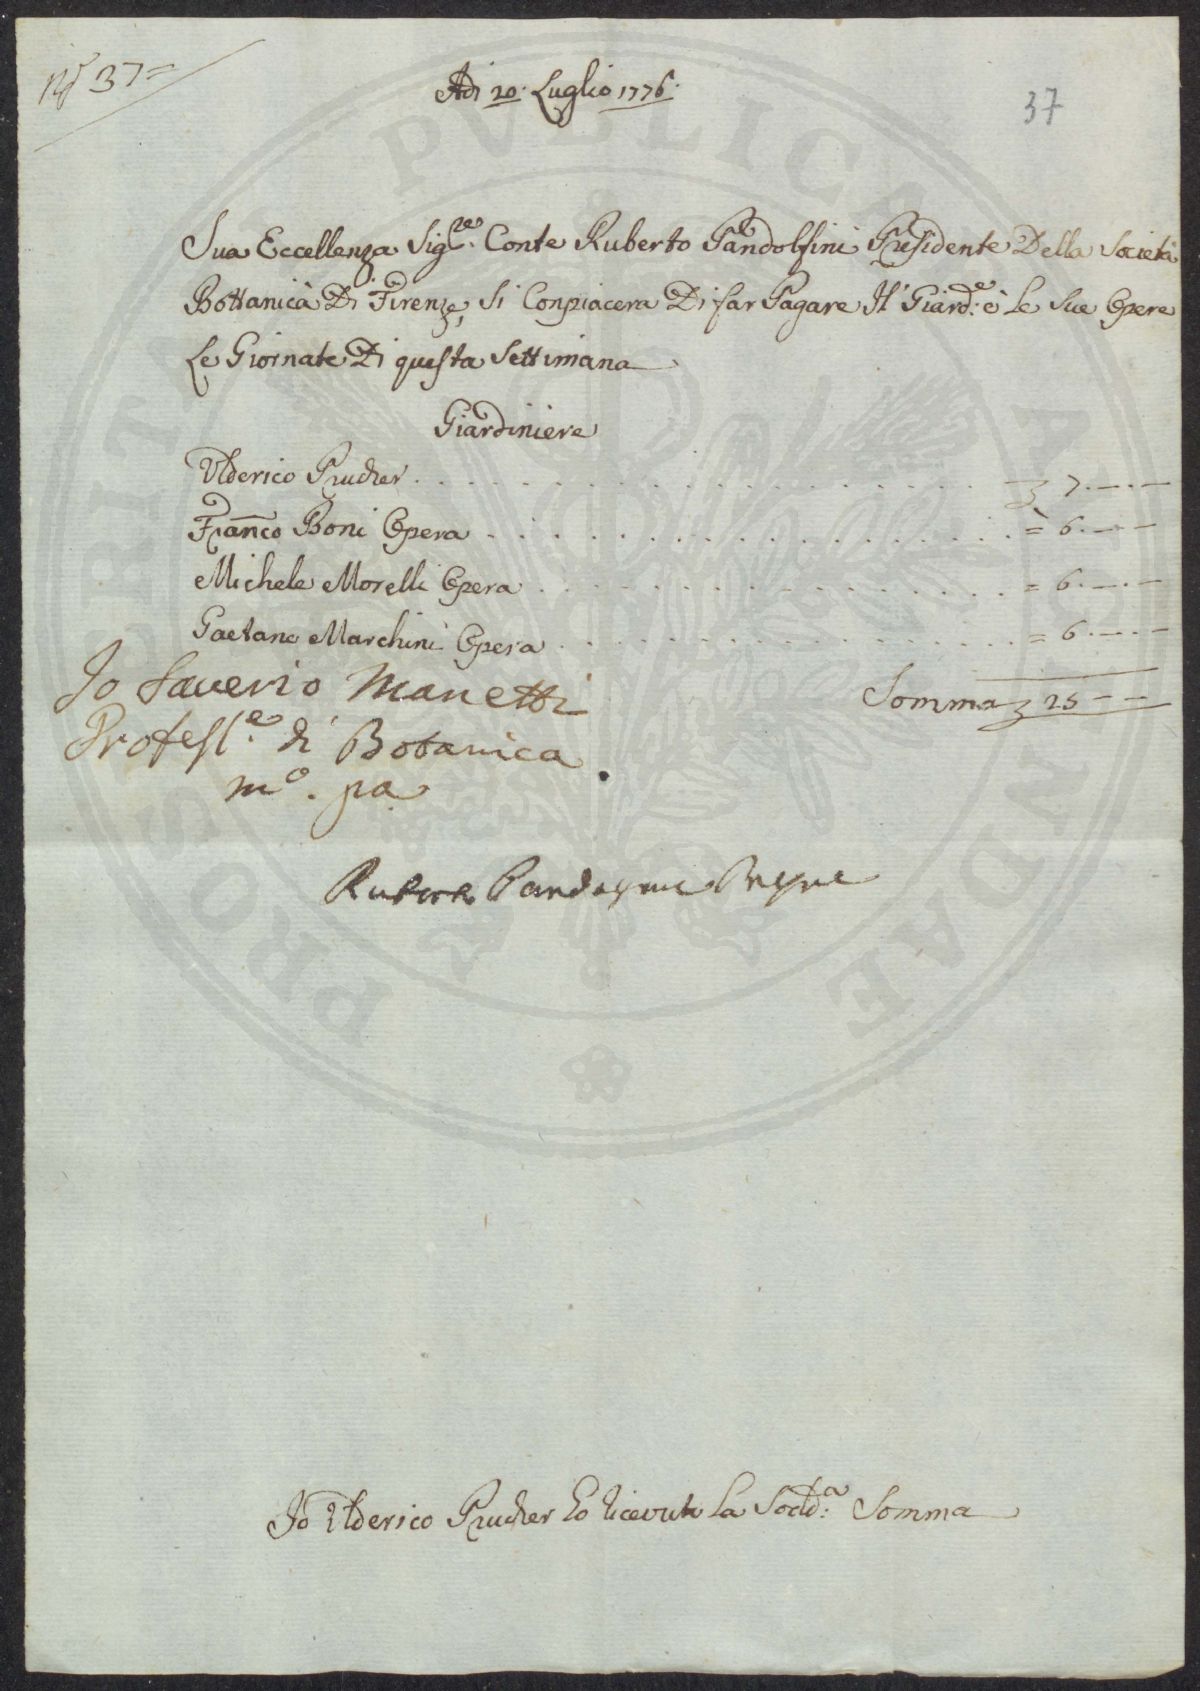 N° 37=
Adi 20. Luglio 1776.
37
Sua Eccellenza Sig.re Conte Ruberto Pandolfini Presidente Della Società
Bottanica Di Firenze, Si Conpiacera Di far Pagare Il Giard.e è Le Sue Opere
Le Giornate Di questa Settimana
Giardiniere
Ulderico Prucher . . . . . . . . . . . . . . . . . . 7.—.—
Franco Boni Opera . . . . . . . . . . . . . . . . = 6.—.—
Michele Morelli Opera . . . . . . . . . . . . . . = 6.—.—
Gaetano Marchini Opera . . . . . . . . . . . . . = 6.—.—
Somma 25 — —
Io Saverio Manetti
Profess.e di Botanica
m.o pa
Ruberto Pandolfini
Io Ulderico Prucher ho ricevuto La Sodd.a Somma
PROSPERITATI PUBLICAE AUGENDAE